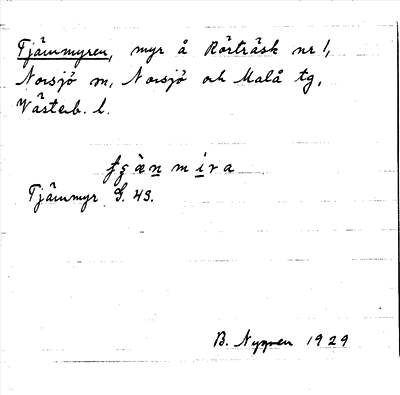 Tjärnmyren, myr å Rörträsk nr 1,
Norsjö sn, Norsjö och Malå tg,
Västerb. l.
Tjärnmyr G. 43.
B. Nygren 1929